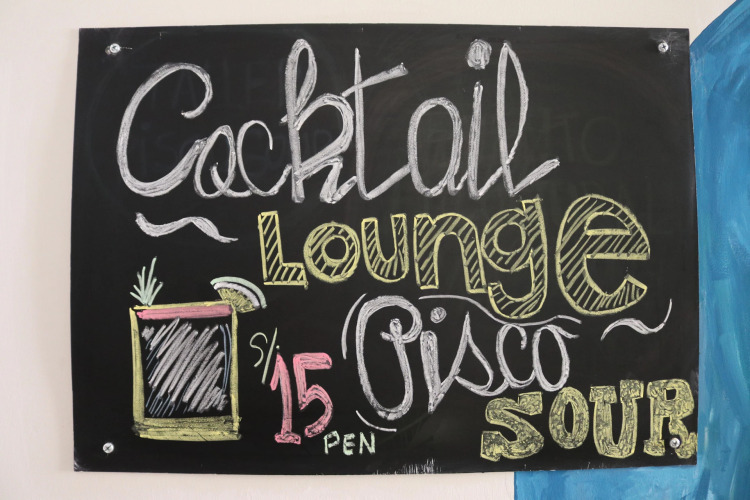 Cocktail
Lounge
S/. 15
PEN
Pisco
SOUR